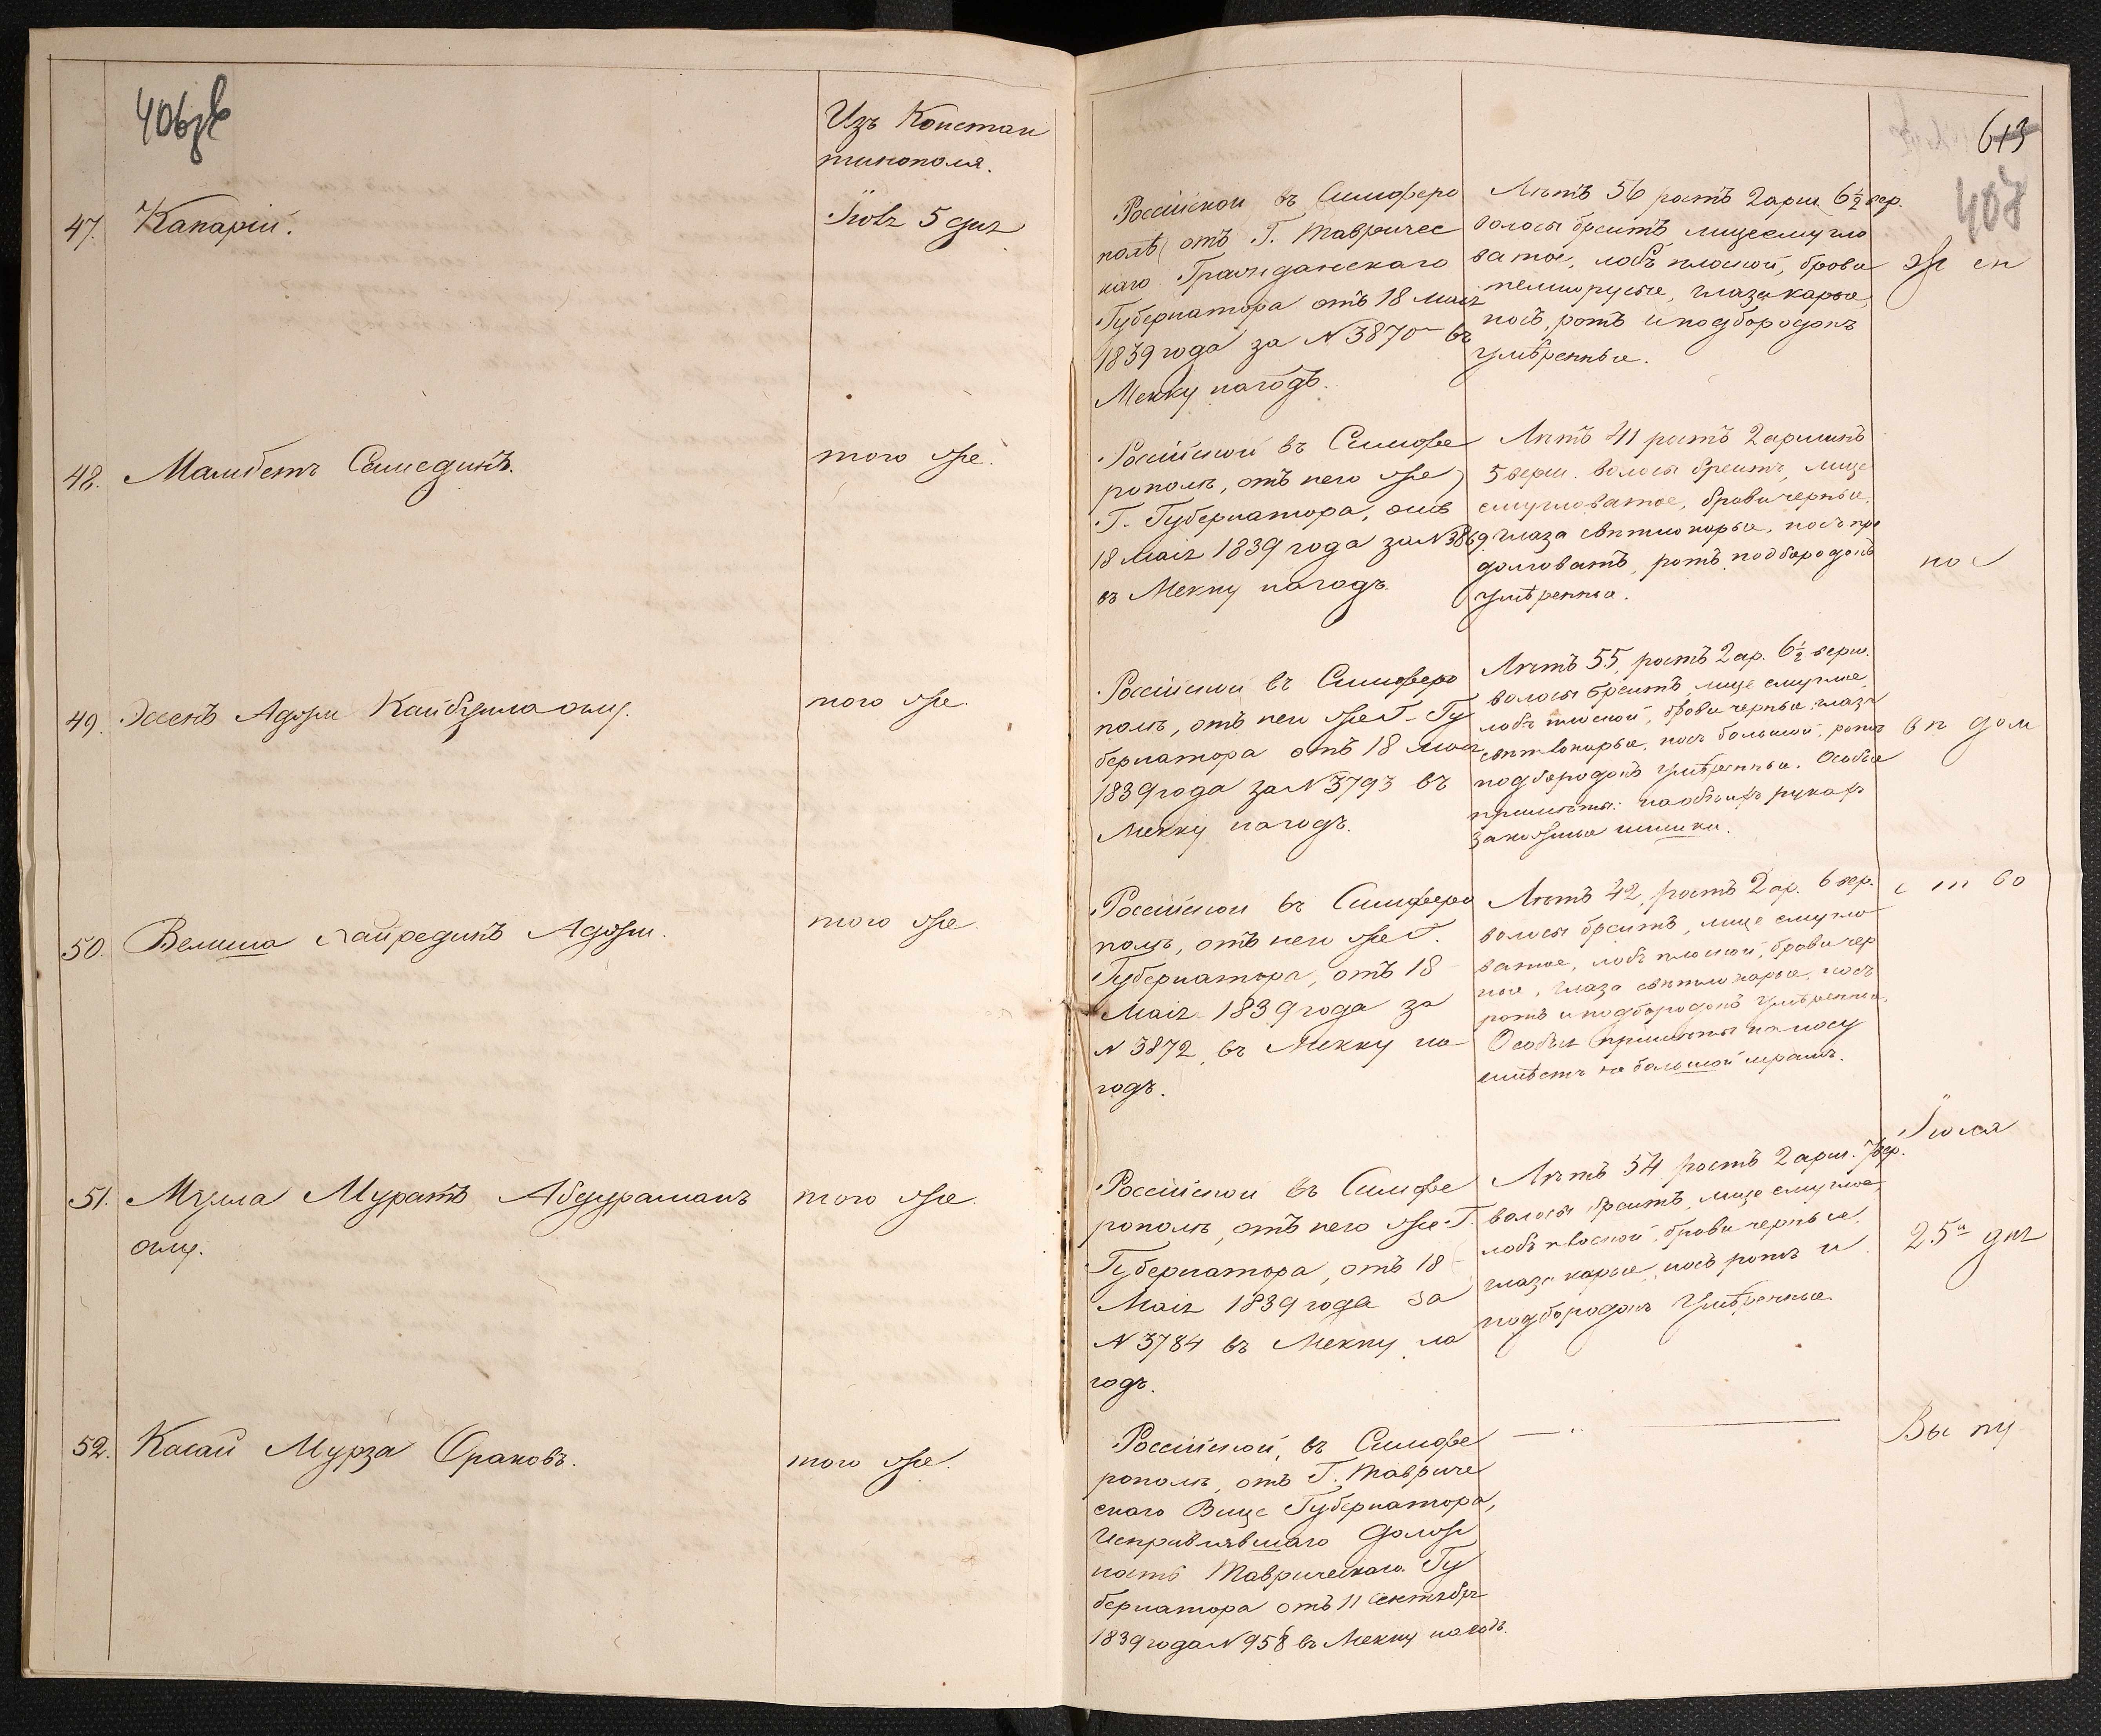 406
Изъ Констан
тинополя.
47. Капарiй.
Iюля 5 дня
48. Мамбетъ Сеитединъ.
того же.
49. Эсенъ Аджи Кайбулла оглу.
того же.
50. Велиша Хайрединъ Аджи.
того же.
51. Мулла Муратъ Абдураманъ
того же.
оглу.
52. Касай Мурза Ораковъ.
того же.
613
407
Россiйской въ Симферо
полѣ отъ Г. Тавричес
каго Гражданскаго
Губернатора отъ 18 маiя
1839 года за N 3870 въ
Мекку на годъ.
Лѣтъ 56 ростъ 2 арш. 6½ вер.
волосы бреитъ лице смугло
ватое, лобъ плоской, брови
темнорусые, глаза карые,
носъ, ротъ и подбородокъ
умѣренные.
Же сп
Россiйской въ Симфе
рополѣ, отъ него же
Г. Губернатора, отъ
18 маiя 1839 года за N 3869
въ Мекку на годъ.
Лѣтъ 41 ростъ 2 аршинъ
5 верш. волосы бреитъ, лице
смугловатое, брови черные,
глаза свѣтлокарые, носъ про
долговатъ, ротъ, подбородокъ
умѣренные.
по с
Россiйской въ Симферо
полѣ, отъ него же Г. Гу
бернатора отъ 18 маiя
1839 года за N 3793 въ
Мекку на годъ.
Лѣтъ 55, ростъ 2 ар. 6½ верш.
волосы бреитъ, лице смуглое,
лобъ плоской, брови черные, глаза
свѣтлокарые, носъ большой, ротъ
подбородокъ умѣренные. Особые
примѣты: на обѣихъ рукахъ
закожные шишки.
вп дом
Россiйской въ Симферо
полѣ, отъ него же Г.
Губернатора, отъ 18
Маiя 1839 года за
N 3872, въ Мекку на
годъ.
Лѣтъ 42, ростъ 2 ар. 6 вер.
волосы бреитъ, лице смугло
ватое, лобъ плоской, брови чер
ные, глаза свѣтлокарые, носъ
ротъ и подбородокъ умѣренные.
Особыя примѣты на носу
имѣетъ не большой шрамъ.
с т во
Россiйской въ Симфе
рополѣ, отъ него же Г.
Губернатора, отъ 18
Маiя 1839 года за
N 3784 въ Мекку на
годъ.
Лѣтъ 54 ростъ 2 арш. 7 вер.
волосы бреитъ, лице смуглое,
лобъ плоской, брови черные,
глаза карые, носъ ротъ и
подбородокъ умѣренные.
Iюля
25го дня
Россiйской, въ Симфе
рополѣ, отъ Г. Тавриче
скаго Вице Губернатора,
Исправлявшаго Долж
ность Таврическаго Гу
бернатора отъ 11 Сентября
1839 года N 958 въ Мекку на годъ.
Вы пу